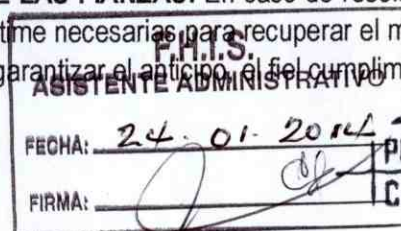 LAS FIANZAS: En caso de
time necesarias para recuperar el m
garantizar el anticipo, el fiel cumplim
F.H.I.S.
ASISTENTE ADMINISTRATIVO
FECHA: 24-01-2014
FIRMA: